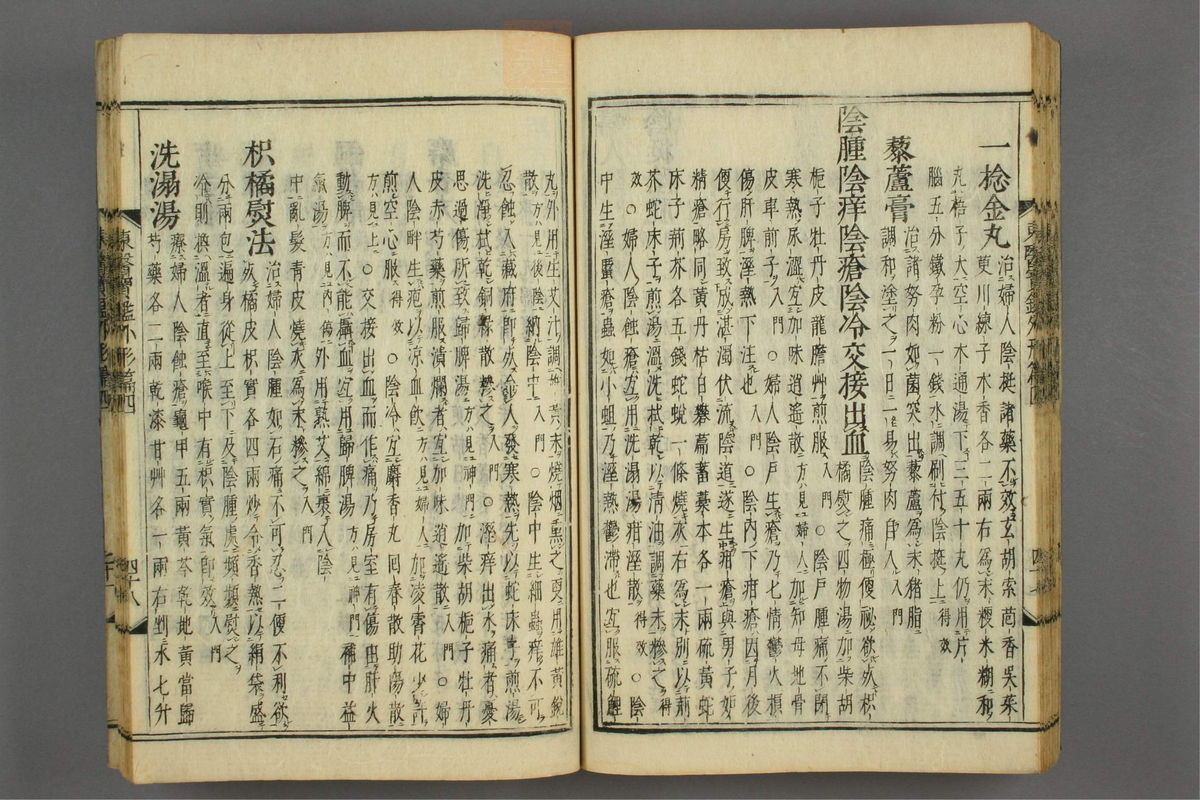 一捻金丸治婦人陰挺諸藥不效玄胡索茴香吳茱
萸川練子木香各二兩右爲末粳米糊和
丸梧子大空心木通湯下三五十丸仍用片
腦五分鐵孕粉一錢水調刷付陰挺上得效
藜蘆膏治諸努肉如菌突出藜蘆爲末猪脂
調和塗之一日一易努肉自入入門
陰腫陰痒陰瘡陰冷交接出血陰腫痛極便祕欲死枳
橘熨之四物湯加柴胡
梔子牡丹皮龍膽艸煎服入門○陰戶腫痛不閉
寒熱尿澁宜加味逍遙散方見婦人加知母地骨
皮車前子入門○婦人陰戶生瘡乃七情鬱火損
傷肝脾溼熱下注也入門○陰內下疳瘡因月後
便行房致成湛濁伏流陰道遂生疳瘡與男子妬
精瘡略同黃丹枯白礬萹蓄藁本各一兩硫黃蛇
床子荊芥各五錢蛇蛻一條燒灰右爲末別以荊
芥蛇床子煎湯溫洗拭乾以清油調藥末摻之得
效○婦人陰蝕瘡宜用洗溻湯疳溼散得效○陰
中生溼䘌瘡蟲如小蛆乃溼熱鬱滯也宜服硫鯉
丸外用生艾汁調
散方見後陰納陰中入門○陰中生細蟲痒不可
忍蝕入藏府卽死令人發寒熱先以蛇床子煎湯
洗淨拭乾銅綠散摻之入門○溼痒出水痛者憂
思過傷所致歸脾湯方見神門加柴胡梔子牡丹
皮赤芍藥煎服潰爛者宜加味逍遙散入門○婦
人陰畔生疱以涼血飮方見婦人加凌霄花少許
煎空心服得效○陰冷宜麝香丸回春散助陽散
方見上○交接出血而作痛乃房室有傷出肝火
動脾而不能攝血宜用歸脾湯方見神門補中益
氣湯方見內傷外用熟艾綿裹入陰
中亂髮靑皮燒灰爲末摻之入門
枳橘熨法治婦人陰腫如石痛不可忍二便不利欲
死橘皮枳實各四兩炒令香熱以絹袋盛
分兩包遍身從上至下及陰腫處頻頻熨之
冷則換溫者直至喉中有枳實氣卽效入門
洗溻湯療婦人陰蝕瘡龜甲五兩黃芩乾地黃當歸
芍藥各二兩乾漆甘艸各一兩右剉水七升
東醫寶鑑外形篇四
四十八